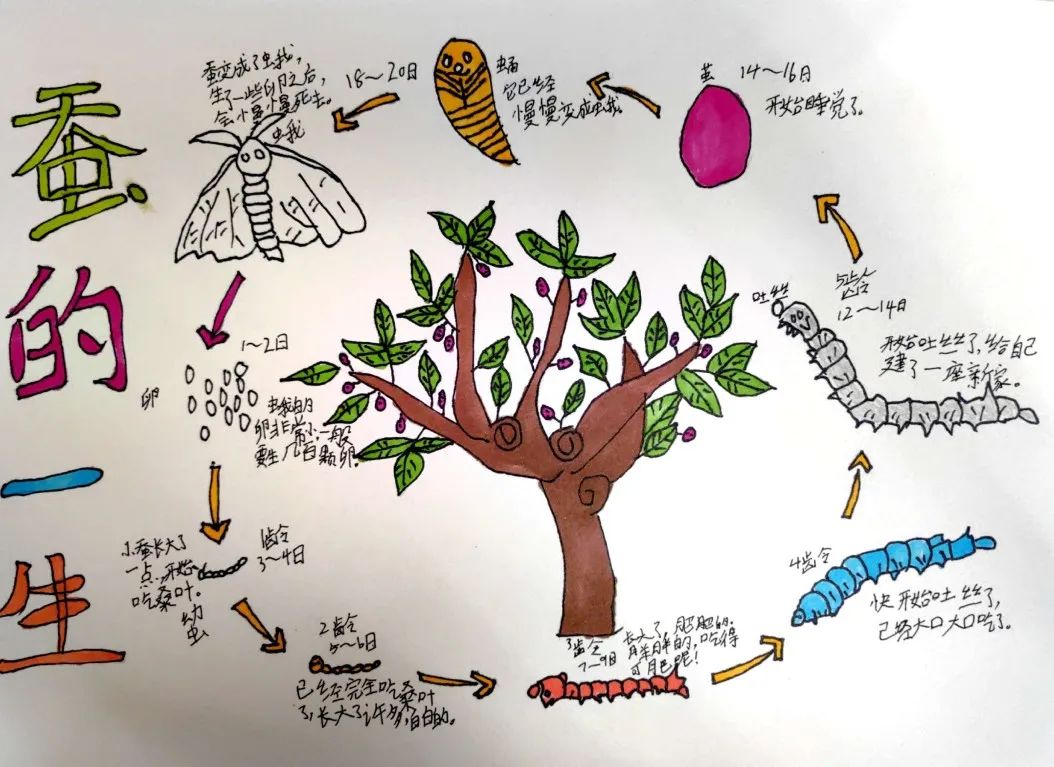 蚕的一生
蚕变成了虫我,
生了一些卵之后,
会慢慢死去。
虫我
18~20日
蛹
它已经
慢慢变成虫我。
茧 14~16日
开始睡觉了。
吐丝
5龄
12~14日
开始吐丝了,给自己
建了一座新家。
1~2日
卵
虫我的
卵非常小一般
要生几百颗卵。
小蚕长大了
一点,开始
吃桑叶。
幼
虫
1龄
3~4日
2龄
5~6日
已经完全吃桑叶
了,长大了许多,白白的。
3龄
7~9日
长大了,肥肥的,
胖胖的,吃得
可肥呢!
4龄
快开始吐丝了,
已经大口大口吃了。